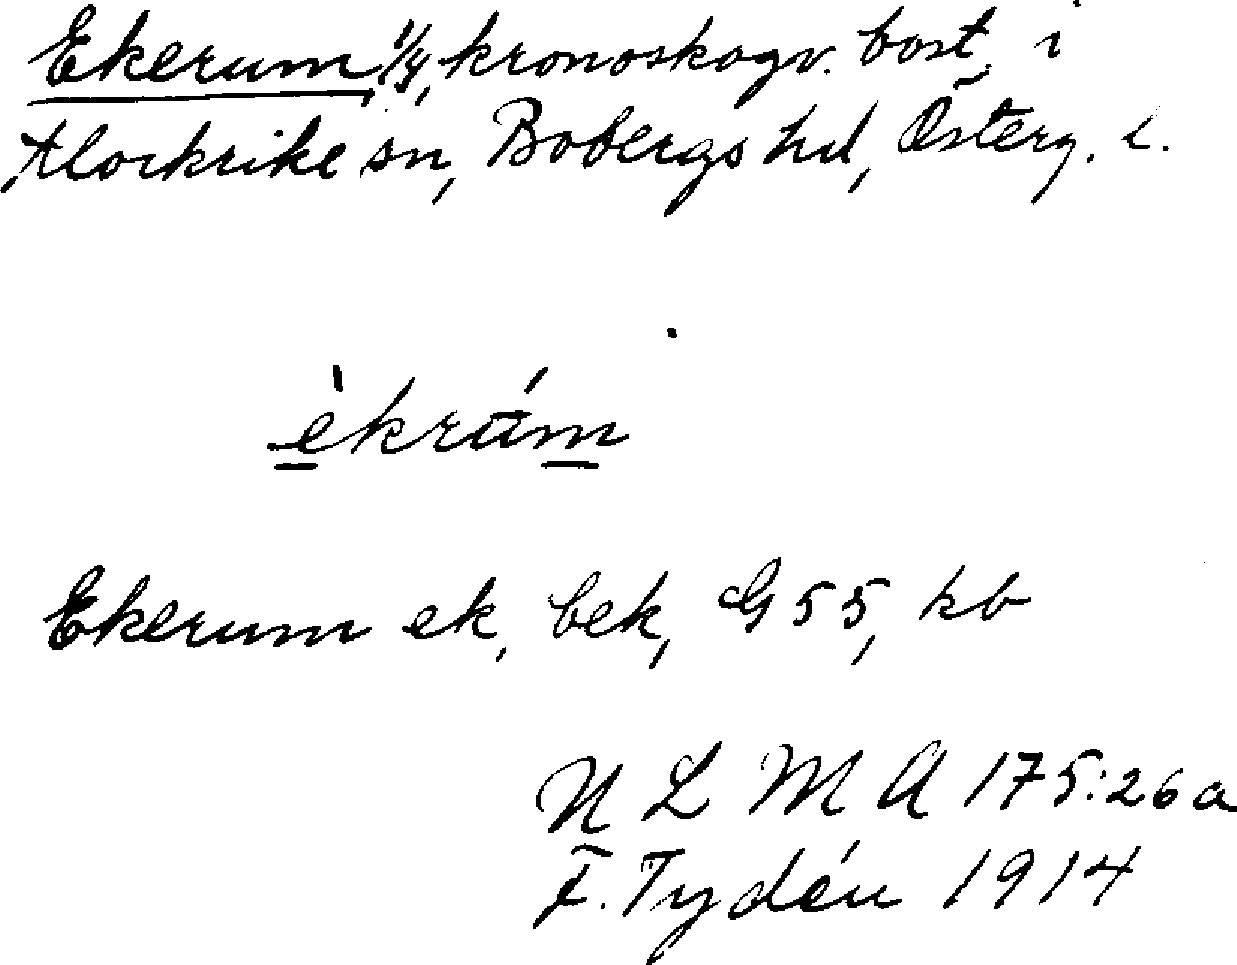 Ekerum 1/4, kronoskogv. bost. i
Klockrike sn, Bobergs hd, Österg. l.
èkrúm
Ekerum ek, bek, G 55, kb
N L M A 175:26a
F. Tydén 1914